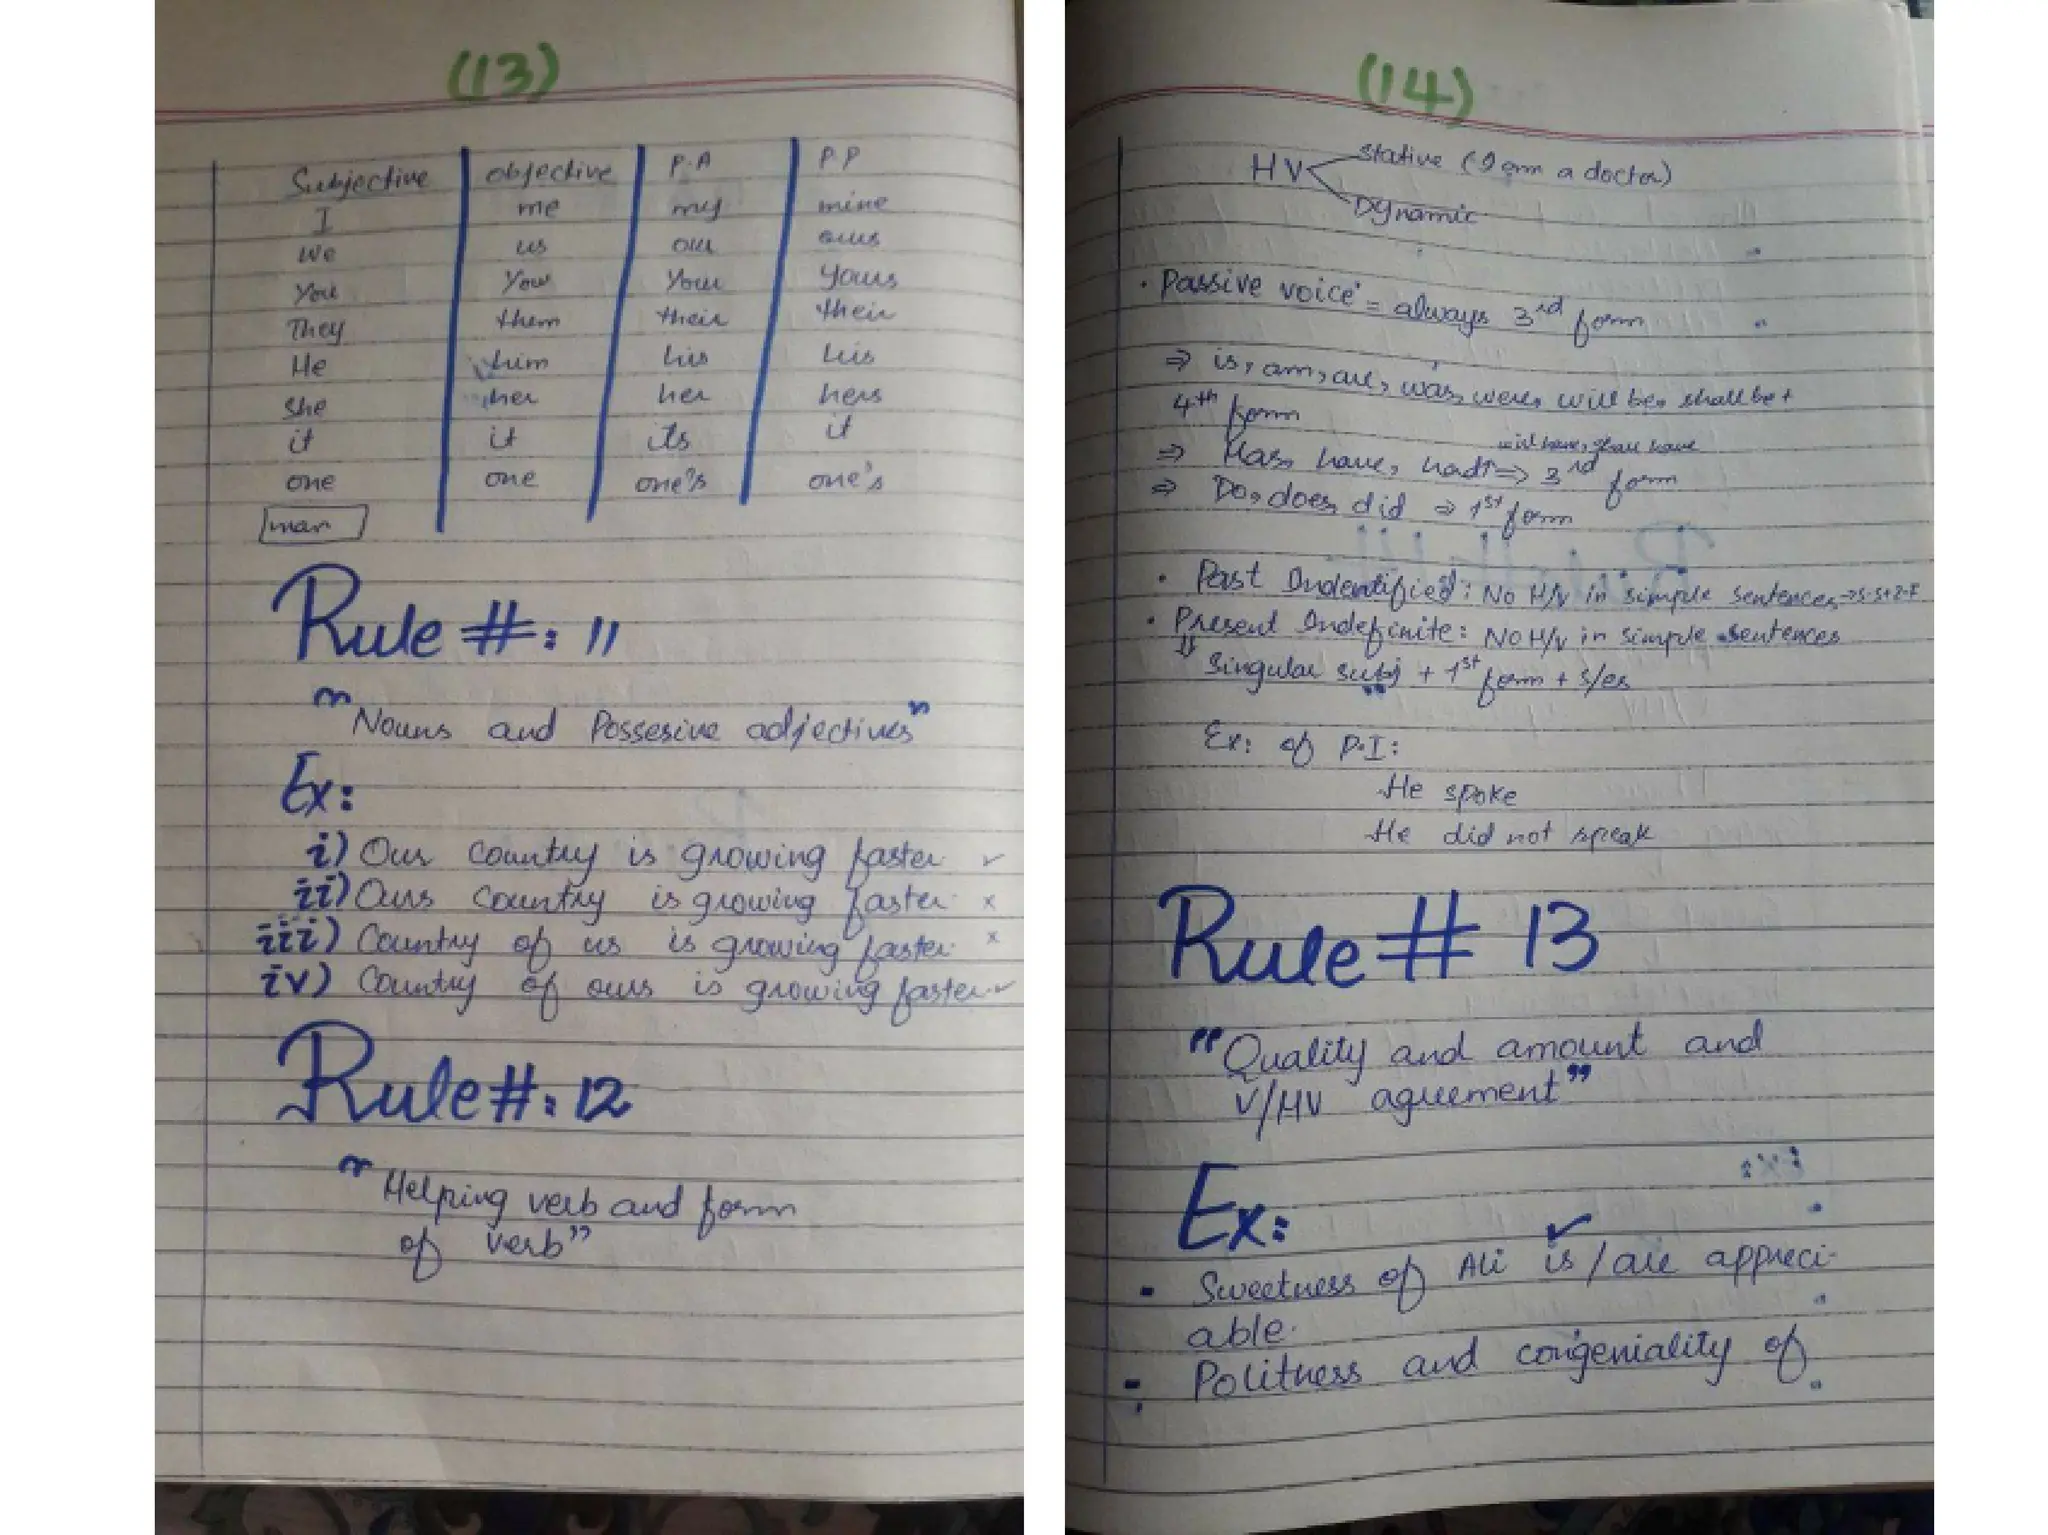 (13)
Subjective objective P.A P.P
I me my mine
we us our ours
you you your yours
They them their their
He him his his
She her her hers
it it its it
one one one's one's
man
Rule #: 11
"Nouns and Possesive adjectives"
Ex:
i) Our country is growing faster ✓
ii) Ours country is growing faster. ×
iii) Country of us is growing faster. ×
iv) Country of ours is growing faster. ✓
Rule #: 12
"Helping verb and form
of verb"
(14)
HV
Stative (I am a doctor)
Dynamic
· Passive voice = always 3rd form
⇒ is, am, are, was, were, will be, shall be +
4th form
will have, shall have
⇒ Has, have, had ⇒ 3rd form
⇒ Do, does, did ⇒ 1st form
· Past Indentified: No H/V in simple sentences → S.S+2.F
· Present Indefinite: No H/V in simple sentences
⇓ Singular subj + 1st form + s/es
Ex: of P.I:
He spoke
He did not speak
Rule # 13
"Quality and amount and
V/HV agreement"
Ex:
▪ Sweetness of Ali is / are appreci-
able.
▪ Politness and congeniality of